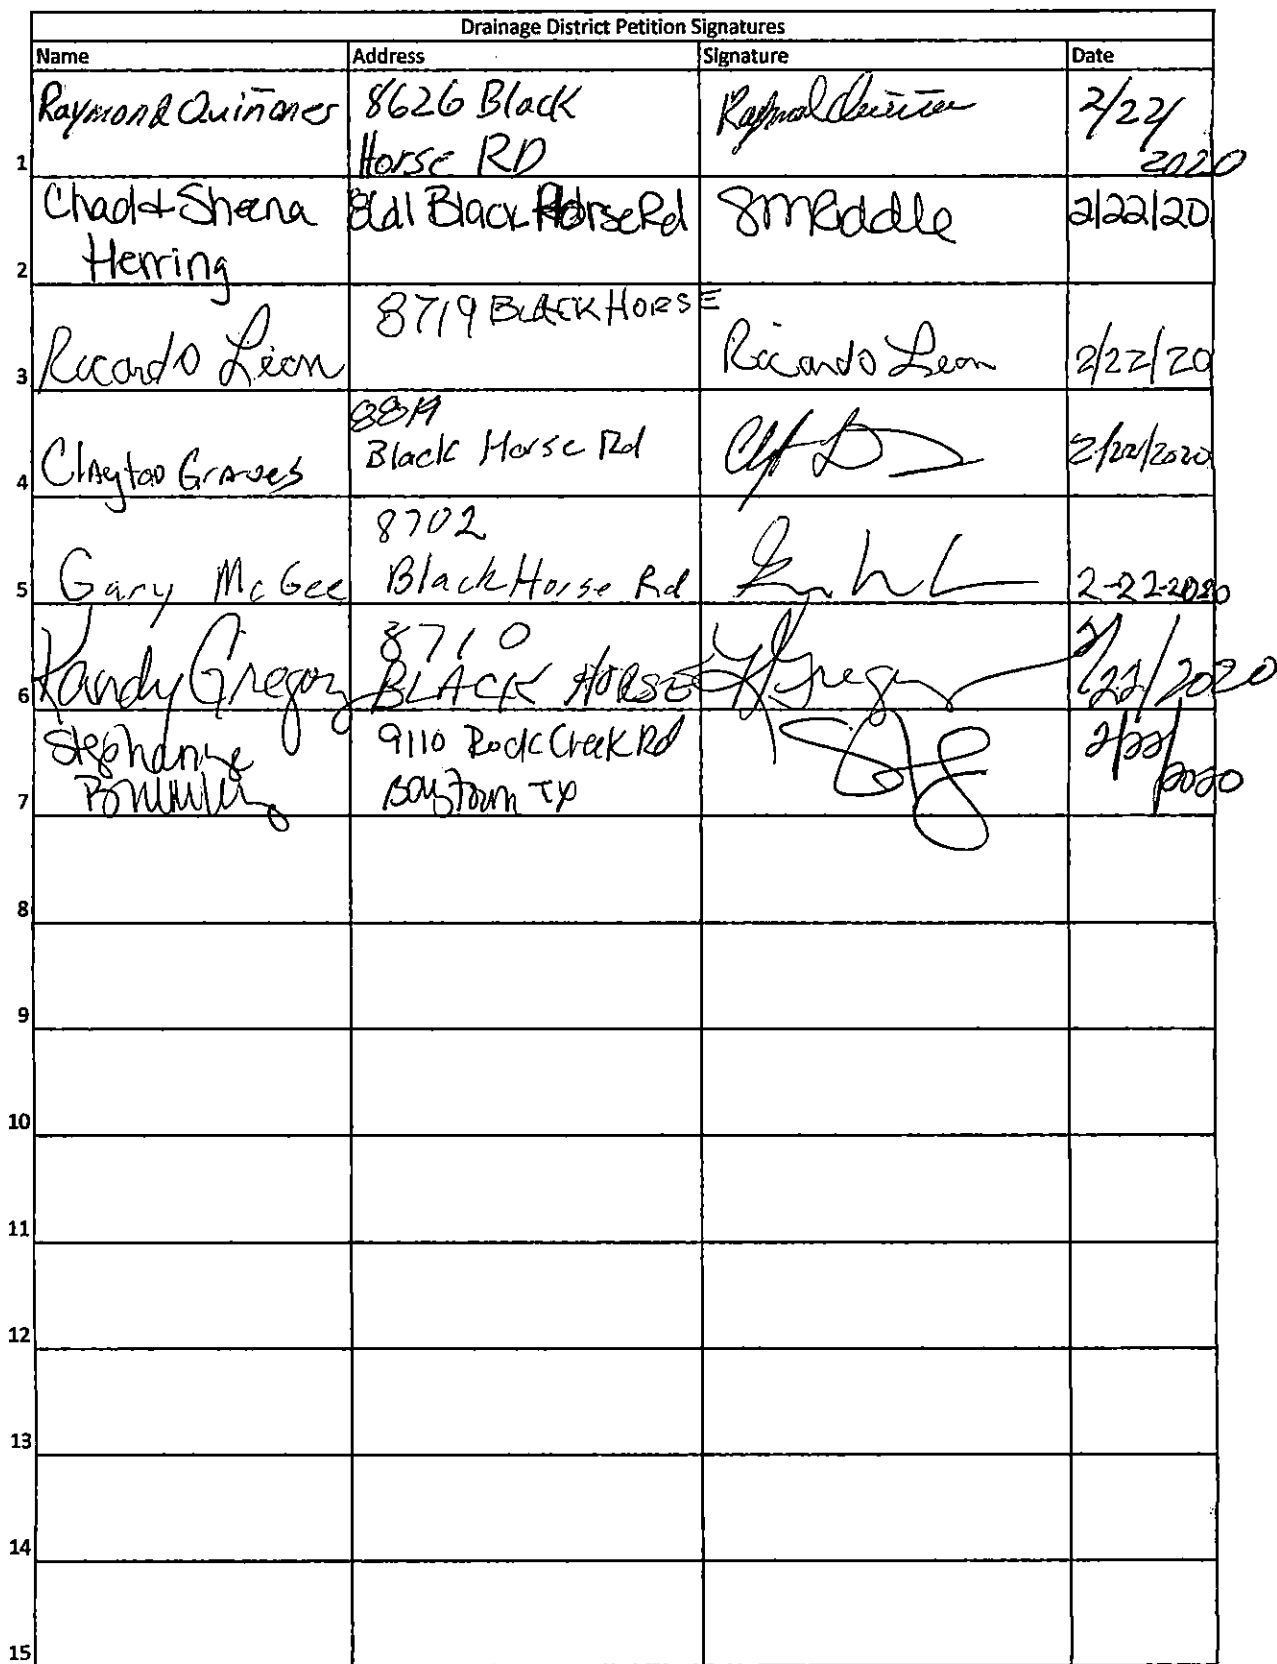 Drainage District Petition Signatures
Name Address Signature Date
1 Raymond Quiñones 8626 Black Horse RD 2/22/2020
2 Chad & Sheena Herring Black Horse Rd SMRiddle 2/22/20
3 Ricardo León 8719 BLACK HORSE Ricardo Leon 2/22/20
4 Clayton Graves Black Horse Rd 2/22/2020
5 Gary McGee 8702 Black Horse Rd 2-22-2020
6 Gregory 8710 BLACK HORSE Gregory 2/22/2020
7 Stephanie 9110 Rock Creek Rd Baytown TX 2/22/2020
8
9
10
11
12
13
14
15